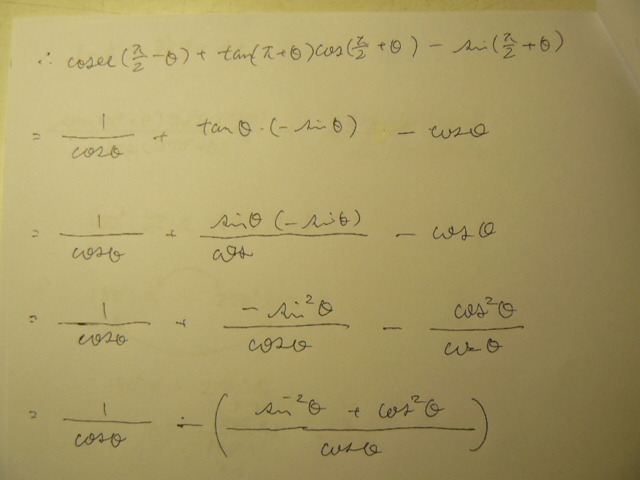 ∴ cosec(π/2 - θ) + tan(π + θ)cos(π/2 + θ) - sin(π/2 + θ)
= 1/cosθ + tanθ·(-sinθ) - cosθ
= 1/cosθ + sinθ(-sinθ)/cos - cosθ
= 1/cosθ + -sin²θ/cosθ - cos²θ/cosθ
= 1/cosθ - (sin²θ + cos²θ/cosθ)